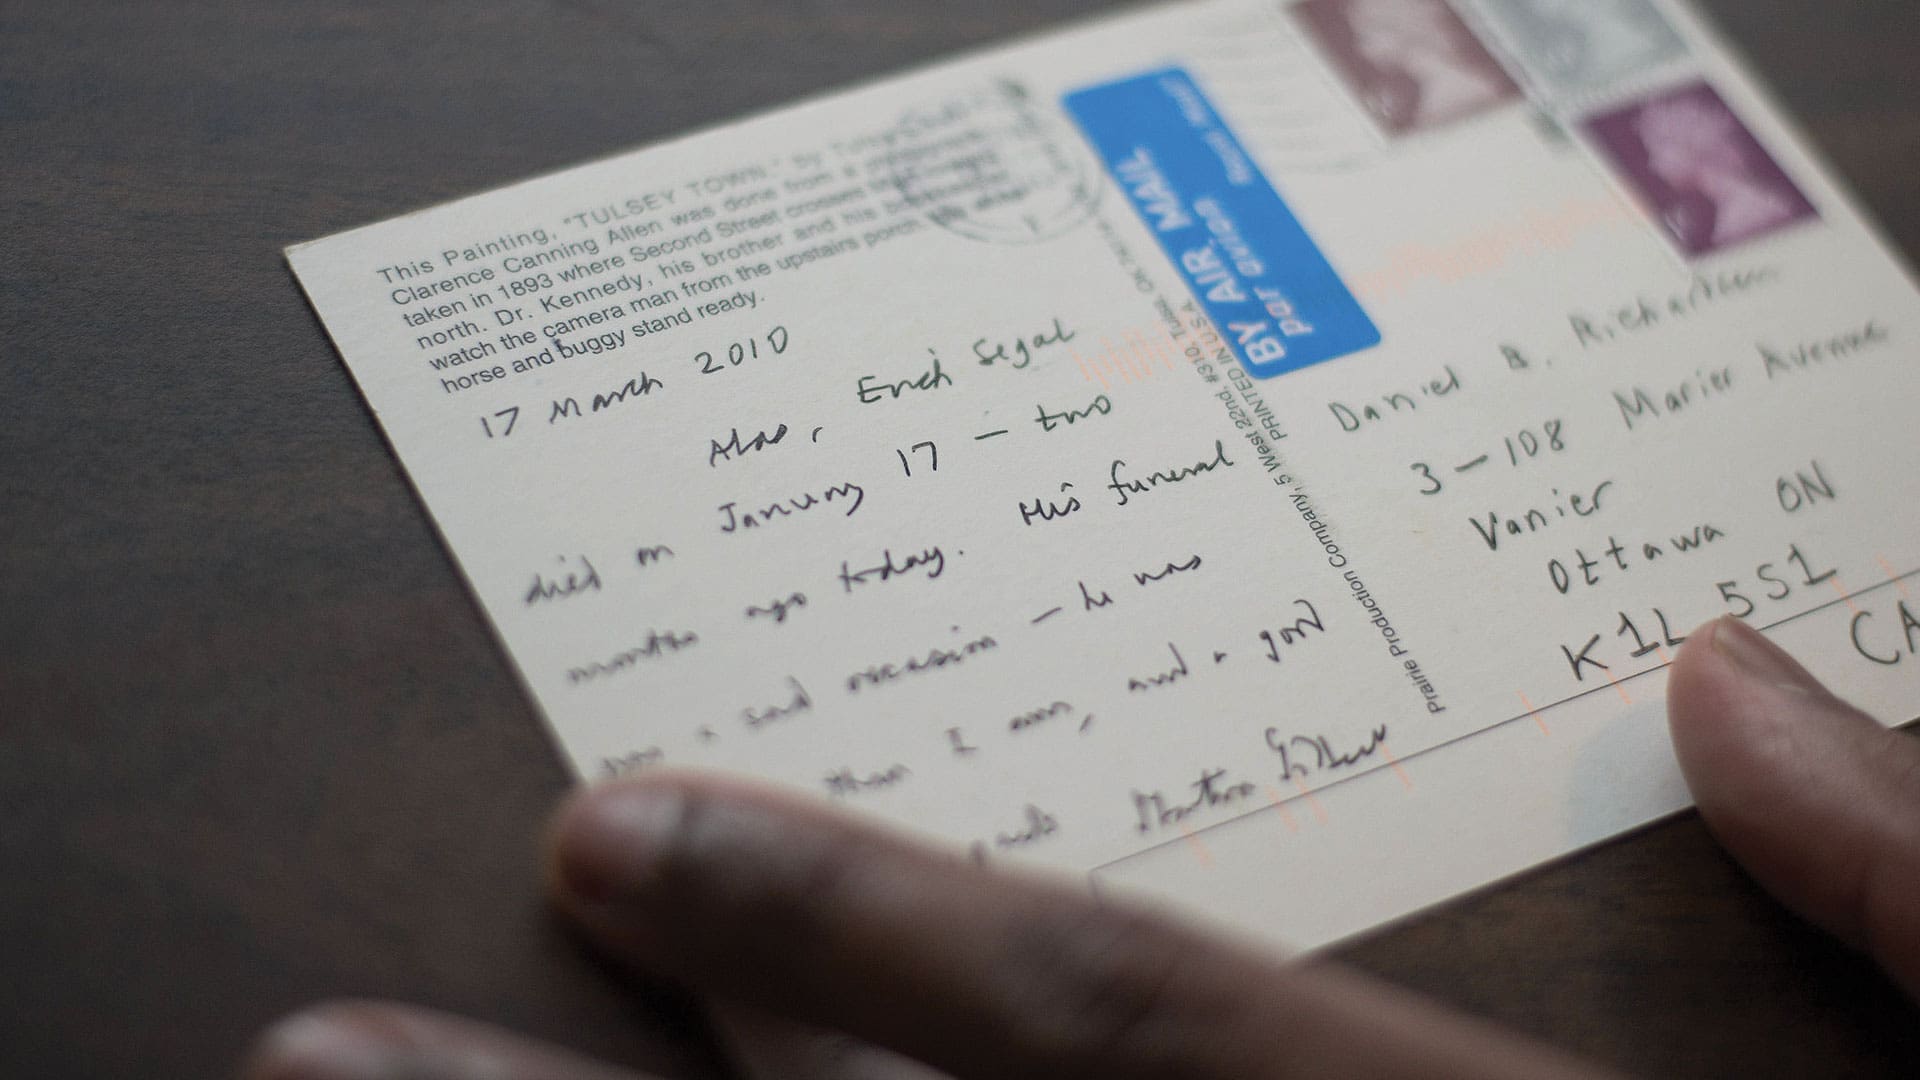 This Painting, "TULSEY TOWN," by
Clarence Canning Allen was done from a
taken in 1893 where Second Street crosses
north. Dr. Kennedy, his brother and his
watch the camera man from the upstairs porch.
horse and buggy stand ready.
17 March 2010
Alas, Erich Segal
died on January 17 — two
months ago today. His funeral
was a sad occasion — he was
than I am, and a good
Martin Gilbert
Prairie Production Company, 5 West 22nd, #310, Tulsa, OK
PRINTED IN U.S.A.
BY AIR MAIL
par avion
Royal Mail
Daniel B. Richardson
3 — 108 Marier Avenue
Vanier
Ottawa ON
K1L 5S1
CA